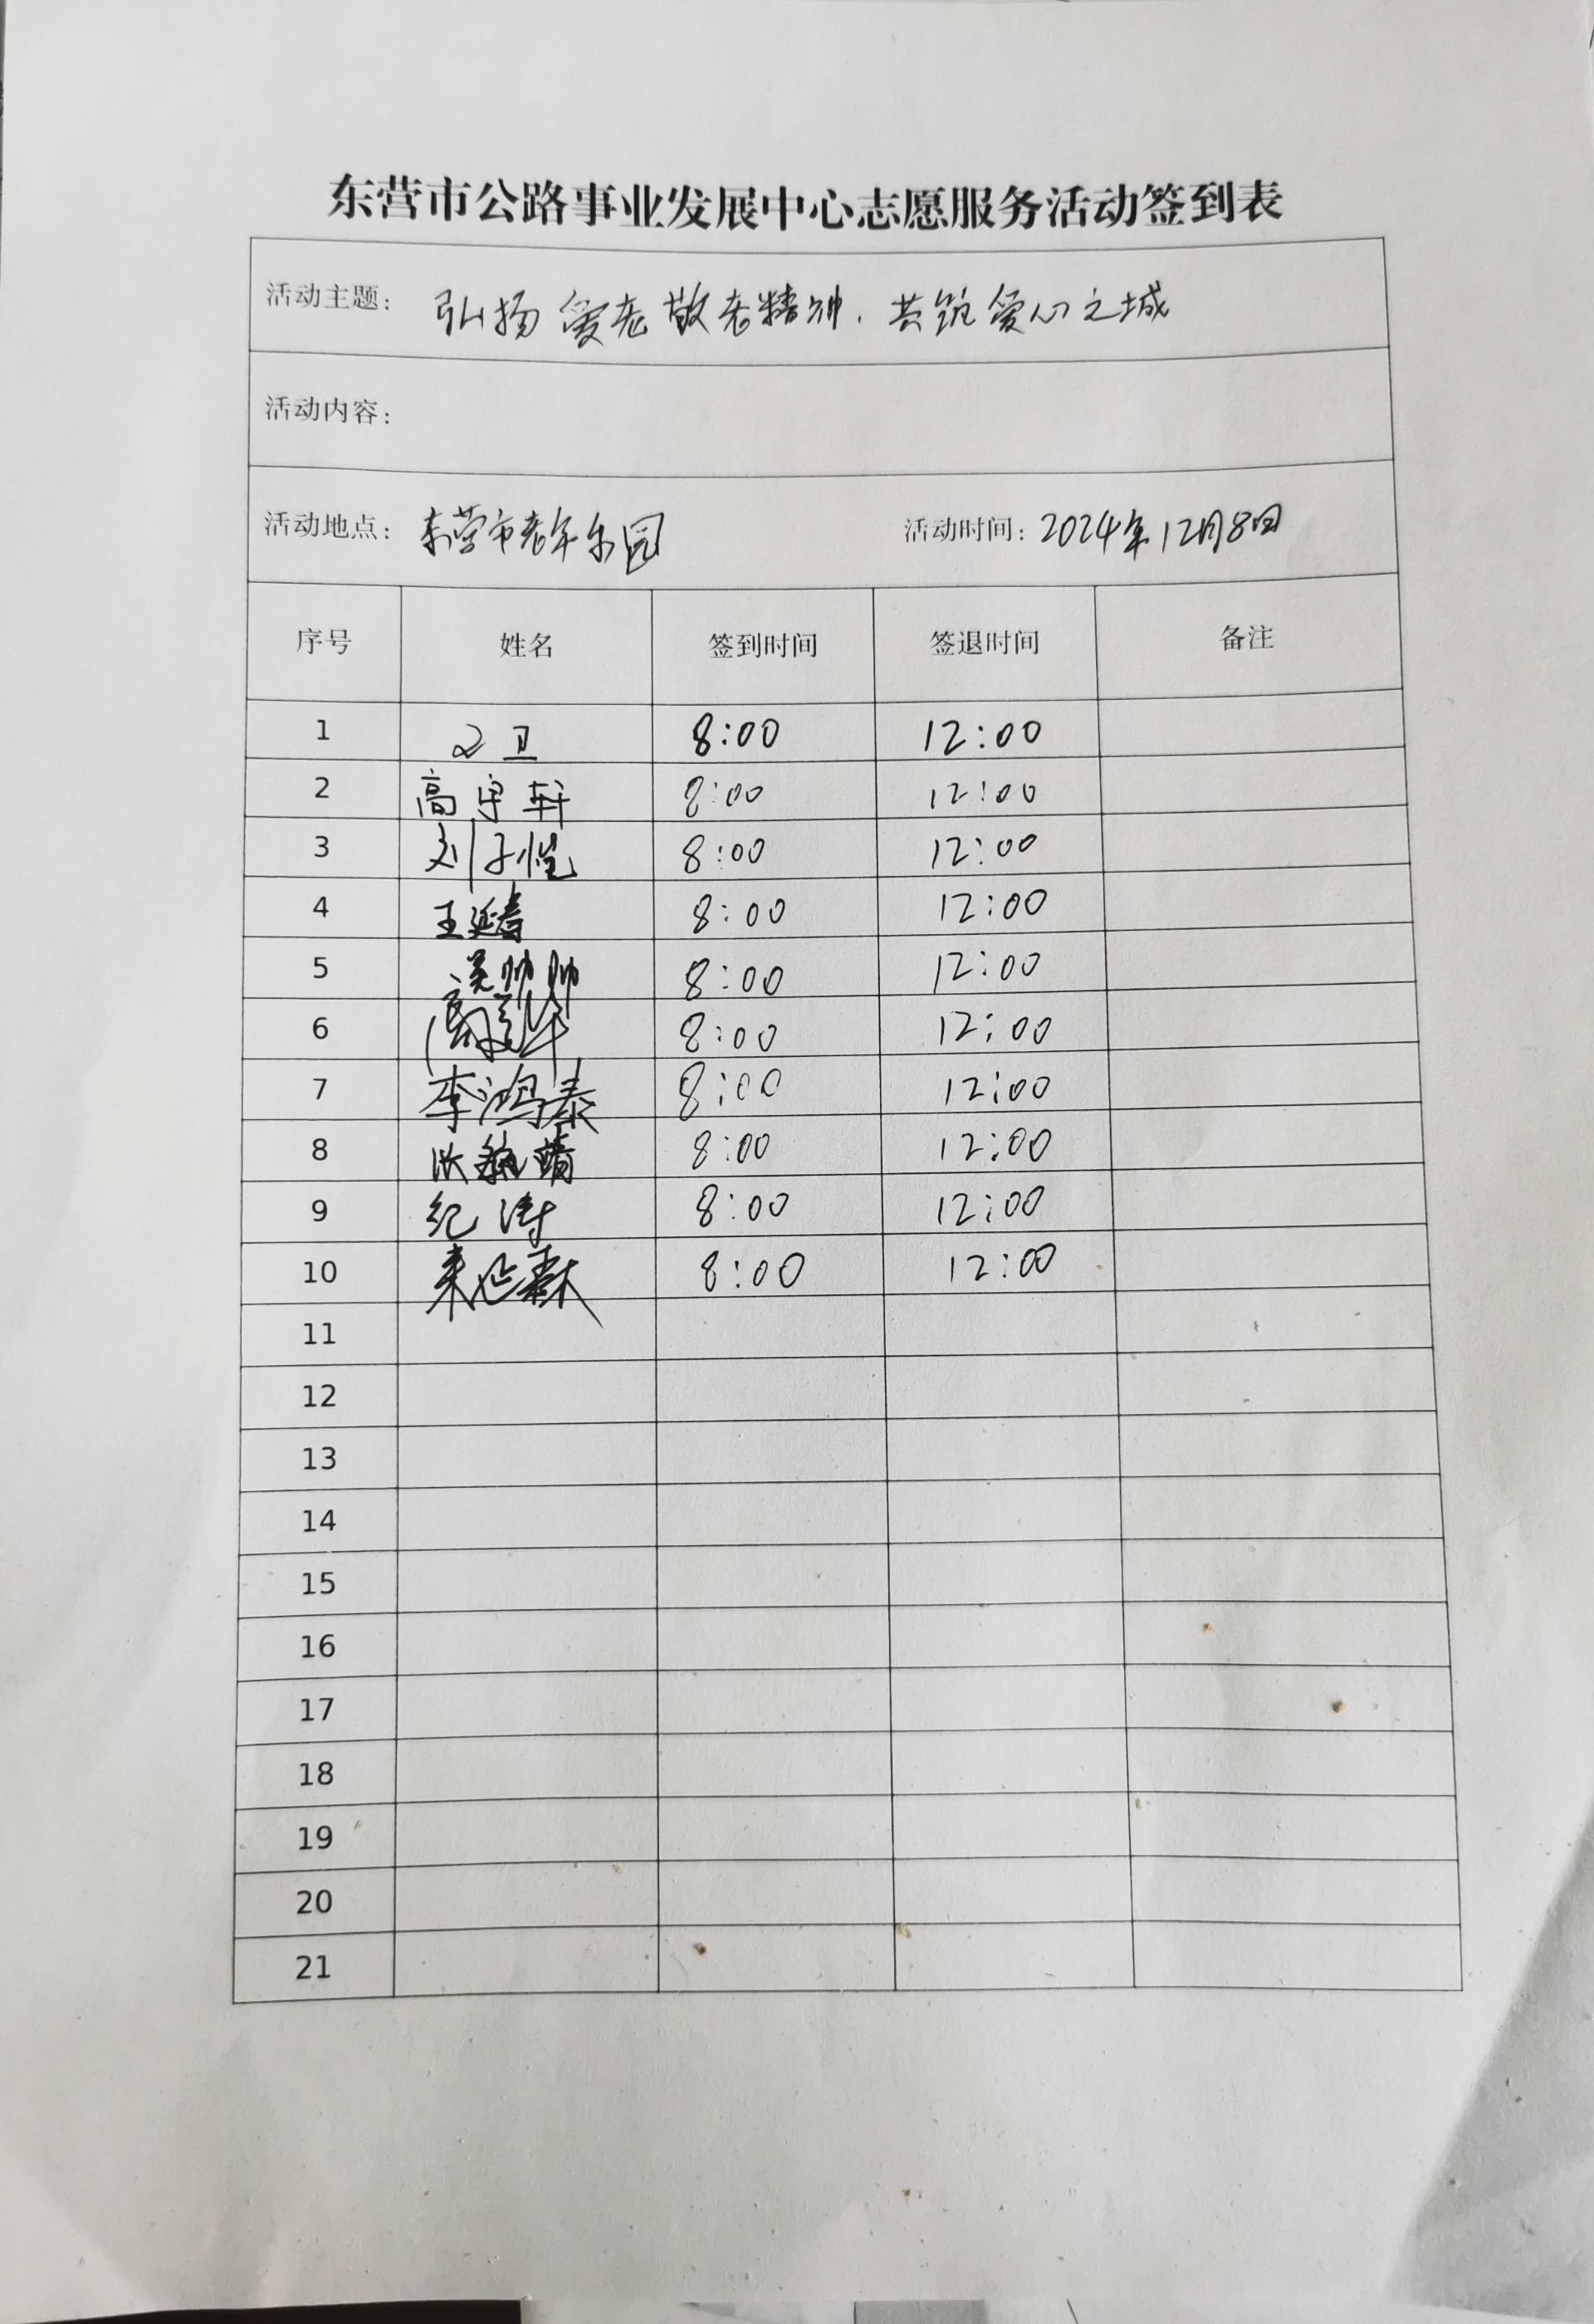 东营市公路事业发展中心志愿服务活动签到表
活动主题： 弘扬爱老敬老精神，共筑爱心之城
活动内容：
活动地点： 东营市老年乐园 活动时间： 2024年12月8日
序号 姓名 签到时间 签退时间 备注
1 8:00 12:00
2 高宇轩 8:00 12:00
3 刘子恺 8:00 12:00
4 王延春 8:00 12:00
5 吴帅帅 8:00 12:00
6 8:00 12:00
7 李鸿泰 8:00 12:00
8 8:00 12:00
9 纪涛 8:00 12:00
10 8:00 12:00
11
12
13
14
15
16
17
18
19
20
21